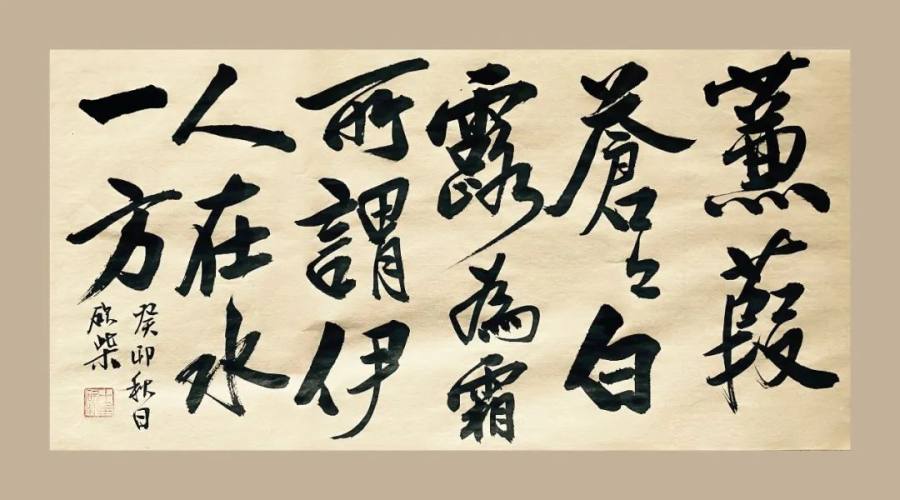 蒹葭
蒼々白
露為霜
所謂伊
人在水
一方
癸卯秋日